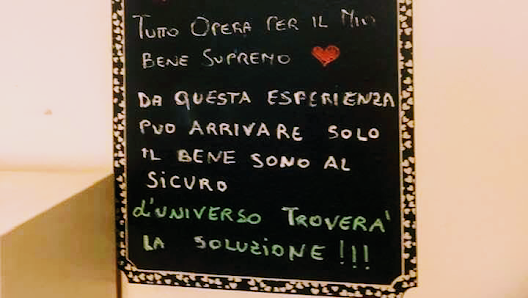 TUTTO OPERA PER IL MIO
BENE SUPREMO
DA QUESTA ESPERIENZA
PUÒ ARRIVARE SOLO
IL BENE SONO AL
SICURO
L'UNIVERSO TROVERA'
LA SOLUZIONE!!!